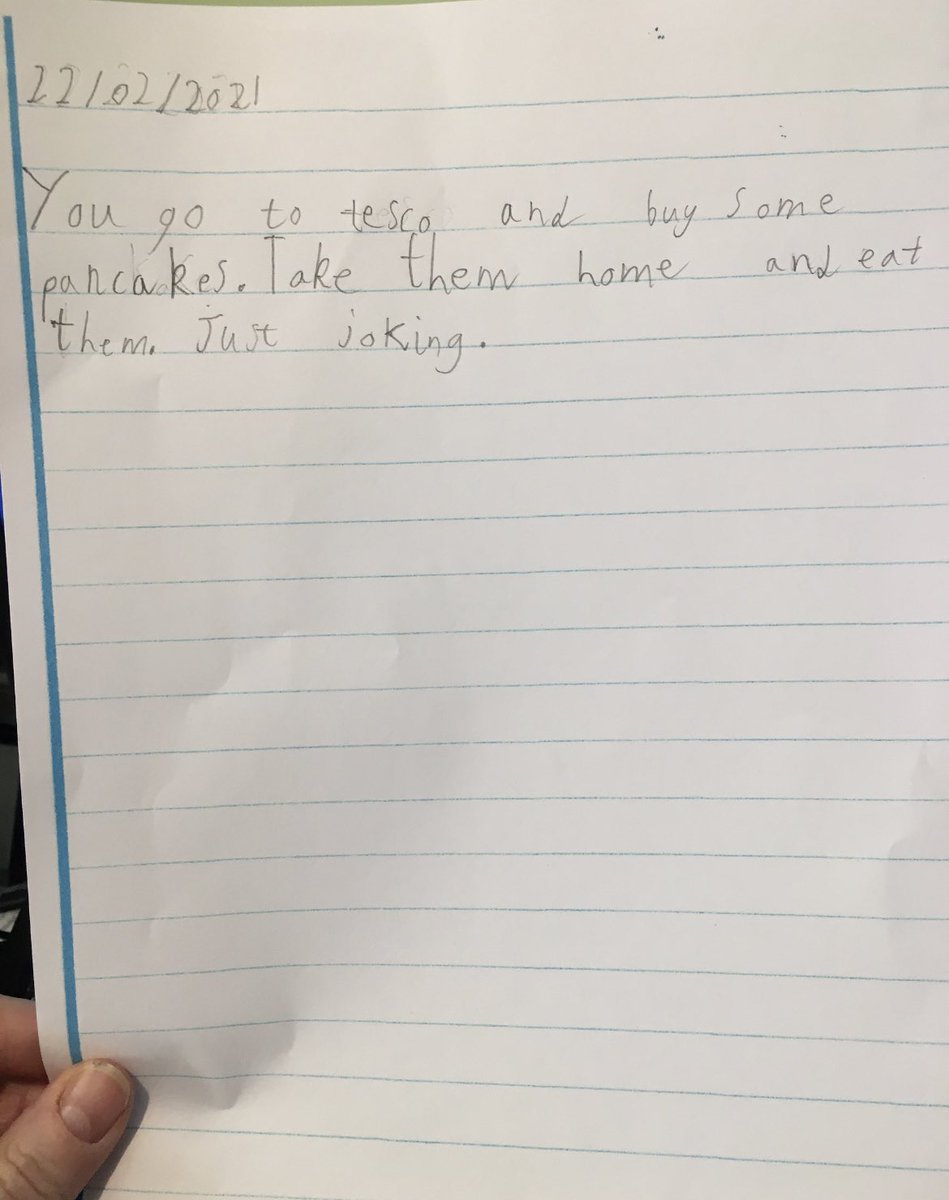 22/02/2021
You go to tesco and buy some
pancakes. Take them home and eat
them. Just joking.